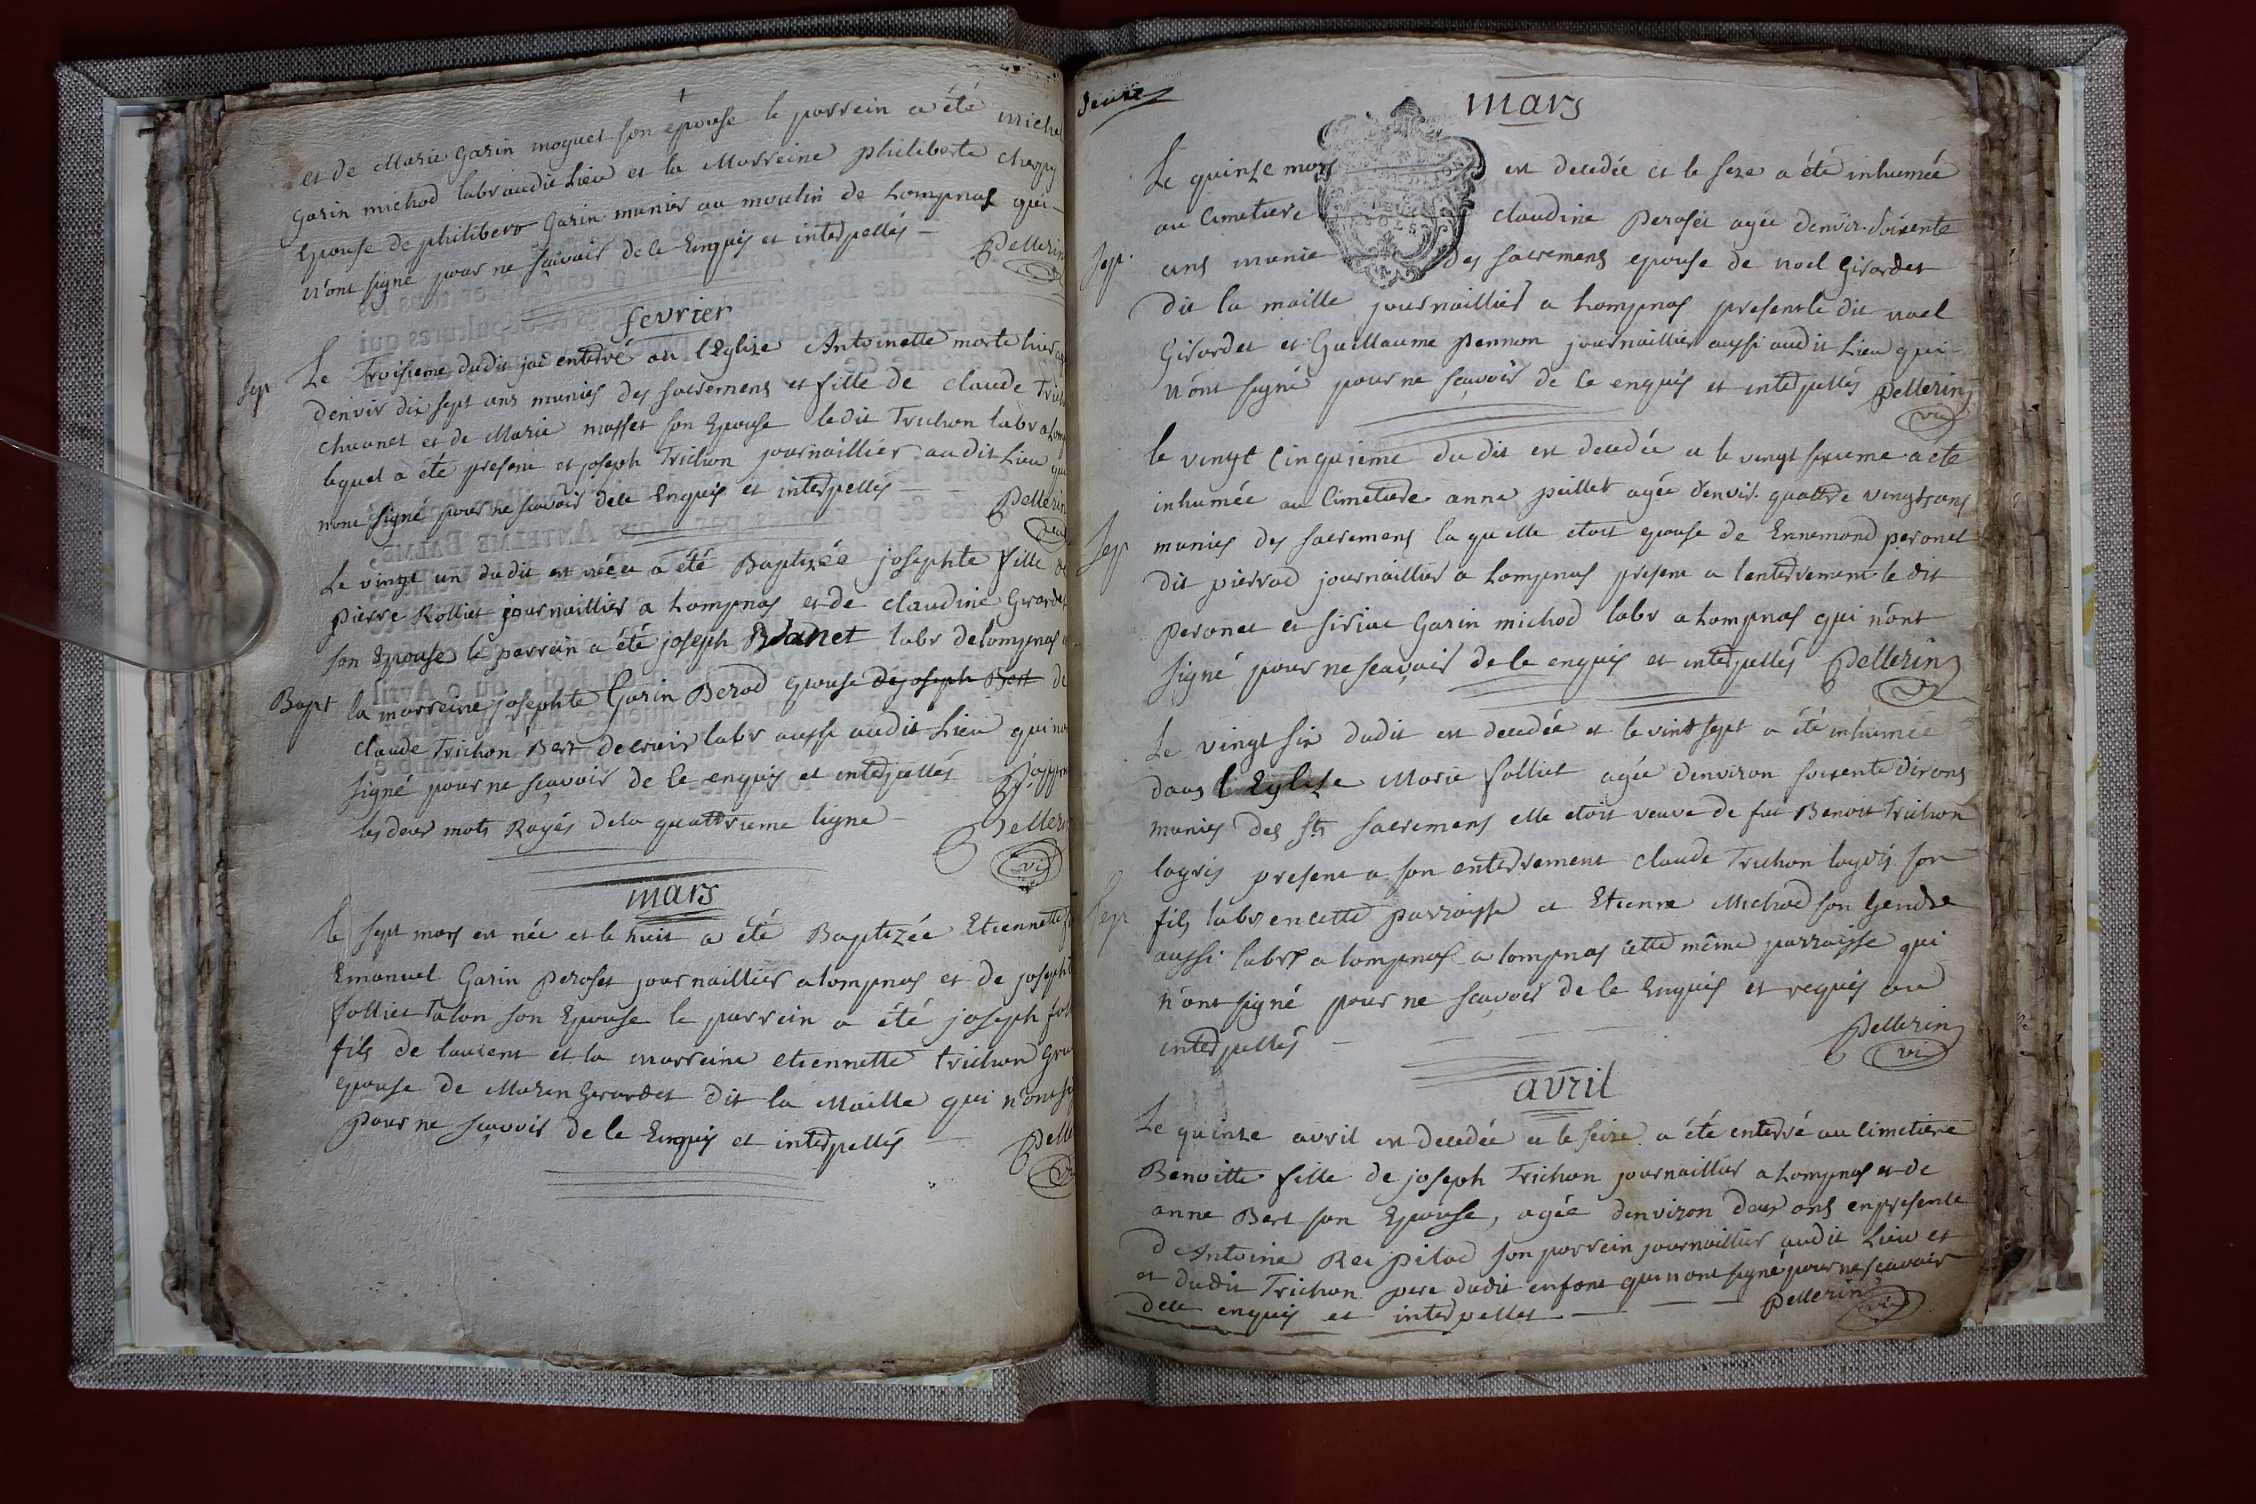 et de Marie Garin moguet son épouse le parrein a été miche
Garin michod labr audit Lieu et la Marreine philiberte
Epouse de philibert Garin munier au moulin de Lompnas qui
n'ont signé pour ne sçavoir de le Enquis et interpellés —
Pellerin
fevrier
Sep
Le Troisieme dudit jai enterré au l'Eglize Antoinette morte hier
denvir dix sept ans munies des sacremens et fille de Claude Trich
et de Marie masset son Epouse ledit Trichon labr a Lomp
lequel a été present et joseph Trichon journaillier audit Lieu qui
n'ont signé pour ne scavoir dele Enquis et interpellés —
Pellerin
vic
Le vingt un dudit est née et a été Baptizée josephte fille de
Pierre Rolliet journaillier a Lompnas et de claudine Girardet
son Epouse le parrein a été joseph Blanet labr de Lompnas
Bapt
la marreine josephte Garin Berod Epouse de joseph Bert de
Claude Trichon Bert labr aussi audit Lieu qui n'ont
signé pour ne sçavoir de le enquis et interpellés J'appr
les deux mots Rayés de la quattrieme ligne —
Pellerin
vic
mars
le sept mars est née et le huit a été Baptizée Etiennette
Emanuel Garin Peroset journaillier a Lompnas et de joseph
folliet Talon son Epouse le parrein a été joseph fol
fils de laurent et la marreine etiennette trichon
epouse de Girardet dit la Maille qui n'ont
pour ne sçavoir de le Enquis et interpellés —
Pelle
mars
Le quinze mars est decedée et le seze a été inhumée
au Cimetiere claudine Peroset agée d'envir. soixente
Sep.
ans munie des sacremens epouse de noel Girardet
dit la maille journaillier a Lompnas present le dit noel
Girardet et Guillaume Pennon journaillier aussi audit Lieu qui
n'ont signé pour ne sçavoir de le enquis et interpellés Pellerin
vic
le vingt Cinquieme du dit est decedée et le vingt sixieme a été
inhumée au Cimetiere anne peillet agée d'envir. quattre vingts ans
Sep
munies des sacremens la quelle etoit epouse de Ennemond peronet
dit pierrad journaillier a Lompnas present a l'enterrement le dit
Peronet et siriac Garin michod labr a Lompnas qui n'ont
signé pour ne scavoir de le enquis et interpellés Pellerin
Le vingt six dudit est decedée et le vint sept a été inhumée
dans l'Eglise Marie folliet agée d'environ soixente dix ans
munies des Sts sacremens elle etoit veuve de fut Benoit Trichon
logris present a son enterrement claude Trichon logris son
Sep
fils labr en cette parroisse et Etienne Michod son Gendre
aussi labr a Lompnas a Lompnas cette même parroisse qui
n'ont signé pour ne sçavoir de le Enquis et requis ou
interpellés —
Pellerin
vic
avril
Le quinze avril est decedée et le seize a été enterré au Cimetiere
Benoitte fille de joseph Trichon journaillier a Lompnas et de
anne Bert son Epouse, agée d'environ deux ans en presente
d'Antoine Rei Pilod son parrein journaillier audit Lieu et
et dudit Trichon pere dudit enfant qui n'ont signé pour ne sçavoir
dele enquis et interpellet —
Pellerin
vic